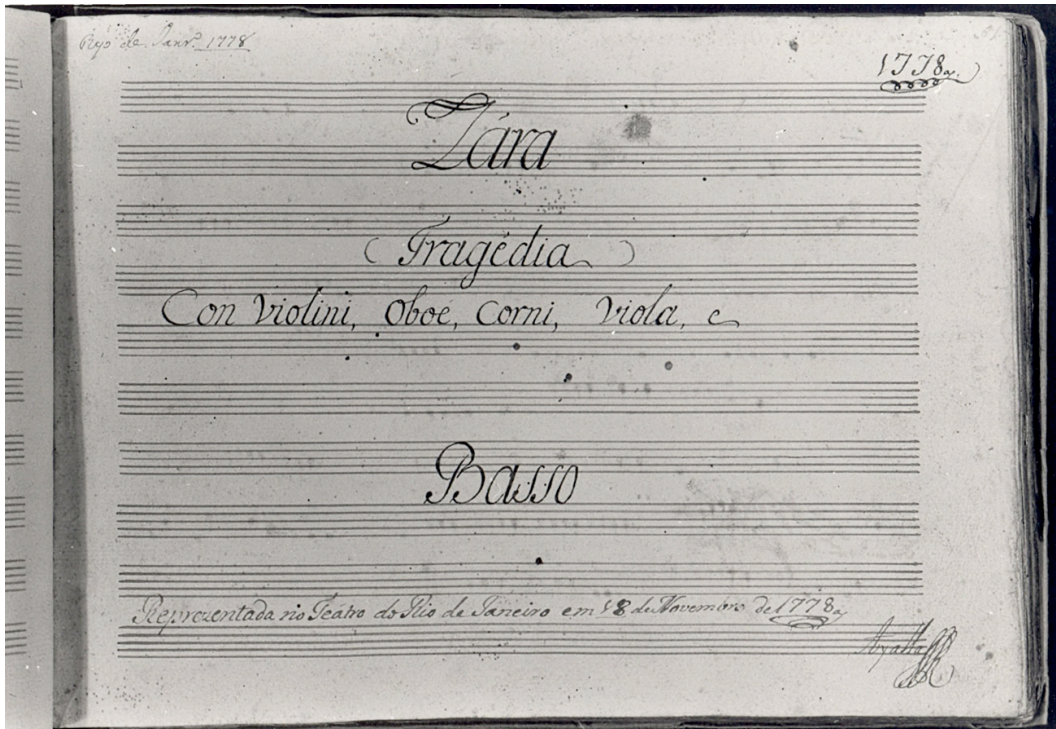 Ryo de Janr.º 1778
1778,,
Zára
Tragédia
Con Violini, Oboé, Corni, Viola, e
Basso
Reprezentada no Teátro do Rio de Janeiro em 18 de Novembro de 1778,,